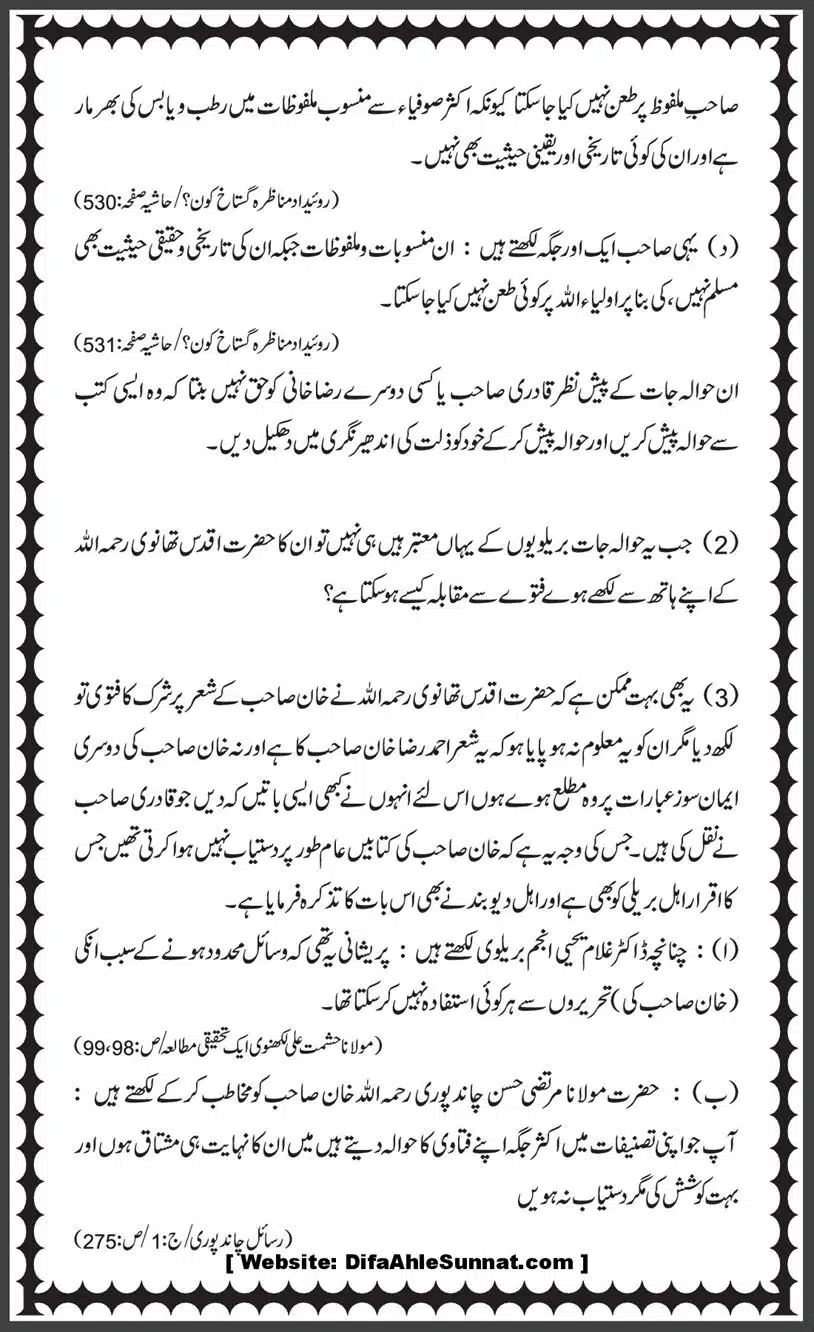 صاحبِ ملفوظ پر طعن نہیں کیا جاسکتا کیونکہ اکثر صوفیاء سے منسوب ملفوظات میں رطب و یابس کی بھرمار
ہے اور ان کی کوئی تاریخی اور یقینی حیثیت بھی نہیں۔
(روئیداد مناظرہ گستاخ کون؟/حاشیہ صفحہ:530)
(د) یہی صاحب ایک اور جگہ لکھتے ہیں : ان منسوبات و ملفوظات جبکہ ان کی تاریخی و حقیقی حیثیت بھی
مسلم نہیں، کی بنا پر اولیاء اللہ پر کوئی طعن نہیں کیا جاسکتا۔
(روئیداد مناظرہ گستاخ کون؟/حاشیہ صفحہ:531)
ان حوالہ جات کے پیش نظر قادری صاحب یا کسی دوسرے رضاخانی کو حق نہیں بنتا کہ وہ ایسی کتب
سے حوالہ پیش کریں اور حوالہ پیش کر کے خود کو ذلت کی اندھیر نگری میں دھکیل دیں۔
(2) جب یہ حوالہ جات بریلویوں کے یہاں معتبر ہیں ہی نہیں تو ان کا حضرت اقدس تھانوی رحمہ اللہ
کے اپنے ہاتھ سے لکھے ہوے فتوے سے مقابلہ کیسے ہوسکتا ہے؟
(3) یہ بھی بہت ممکن ہے کہ حضرت اقدس تھانوی رحمہ اللہ نے خان صاحب کے شعر پر شرک کا فتوی تو
لکھ دیا مگر ان کو یہ معلوم نہ ہو پایا ہو کہ یہ شعر احمد رضا خان صاحب کا ہے اور نہ خان صاحب کی دوسری
ایمان سوز عبارات پر وہ مطلع ہوے ہوں اس لئے انہوں نے کبھی ایسی باتیں کہ دیں جو قادری صاحب
نے نقل کی ہیں۔ جس کی وجہ یہ ہے کہ خان صاحب کی کتابیں عام طور پر دستیاب نہیں ہوا کرتی تھیں جس
کا اقرار اہل بریلی کو بھی ہے اور اہل دیوبند نے بھی اس بات کا تذکرہ فرمایا ہے۔
(ا) : چنانچہ ڈاکٹر غلام یحیی انجم بریلوی لکھتے ہیں : پریشانی یہ تھی کہ وسائل محدود ہونے کے سبب انکی
(خان صاحب کی) تحریروں سے ہر کوئی استفادہ نہیں کرسکتا تھا۔
(مولانا حشمت علی لکھنوی ایک تحقیقی مطالعہ/ص:99،98)
(ب) : حضرت مولانا مرتضی حسن چاندپوری رحمہ اللہ خان صاحب کو مخاطب کر کے لکھتے ہیں :
آپ جو اپنی تصنیفات میں اکثر جگہ اپنے فتاوی کا حوالہ دیتے ہیں میں ان کا نہایت ہی مشتاق ہوں اور
بہت کوشش کی مگر دستیاب نہ ہویں
(رسائل چاندپوری/ج:1/ص:275)
[ Website: DifaAhleSunnat.com ]